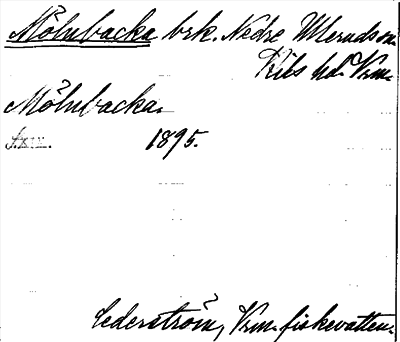 Mölnbacka brk. Nedre Ulleruds sn.
Kils hd. Vrm.
Mölnbacka.
1895.
Cederström, Vrm. fiskevatten.